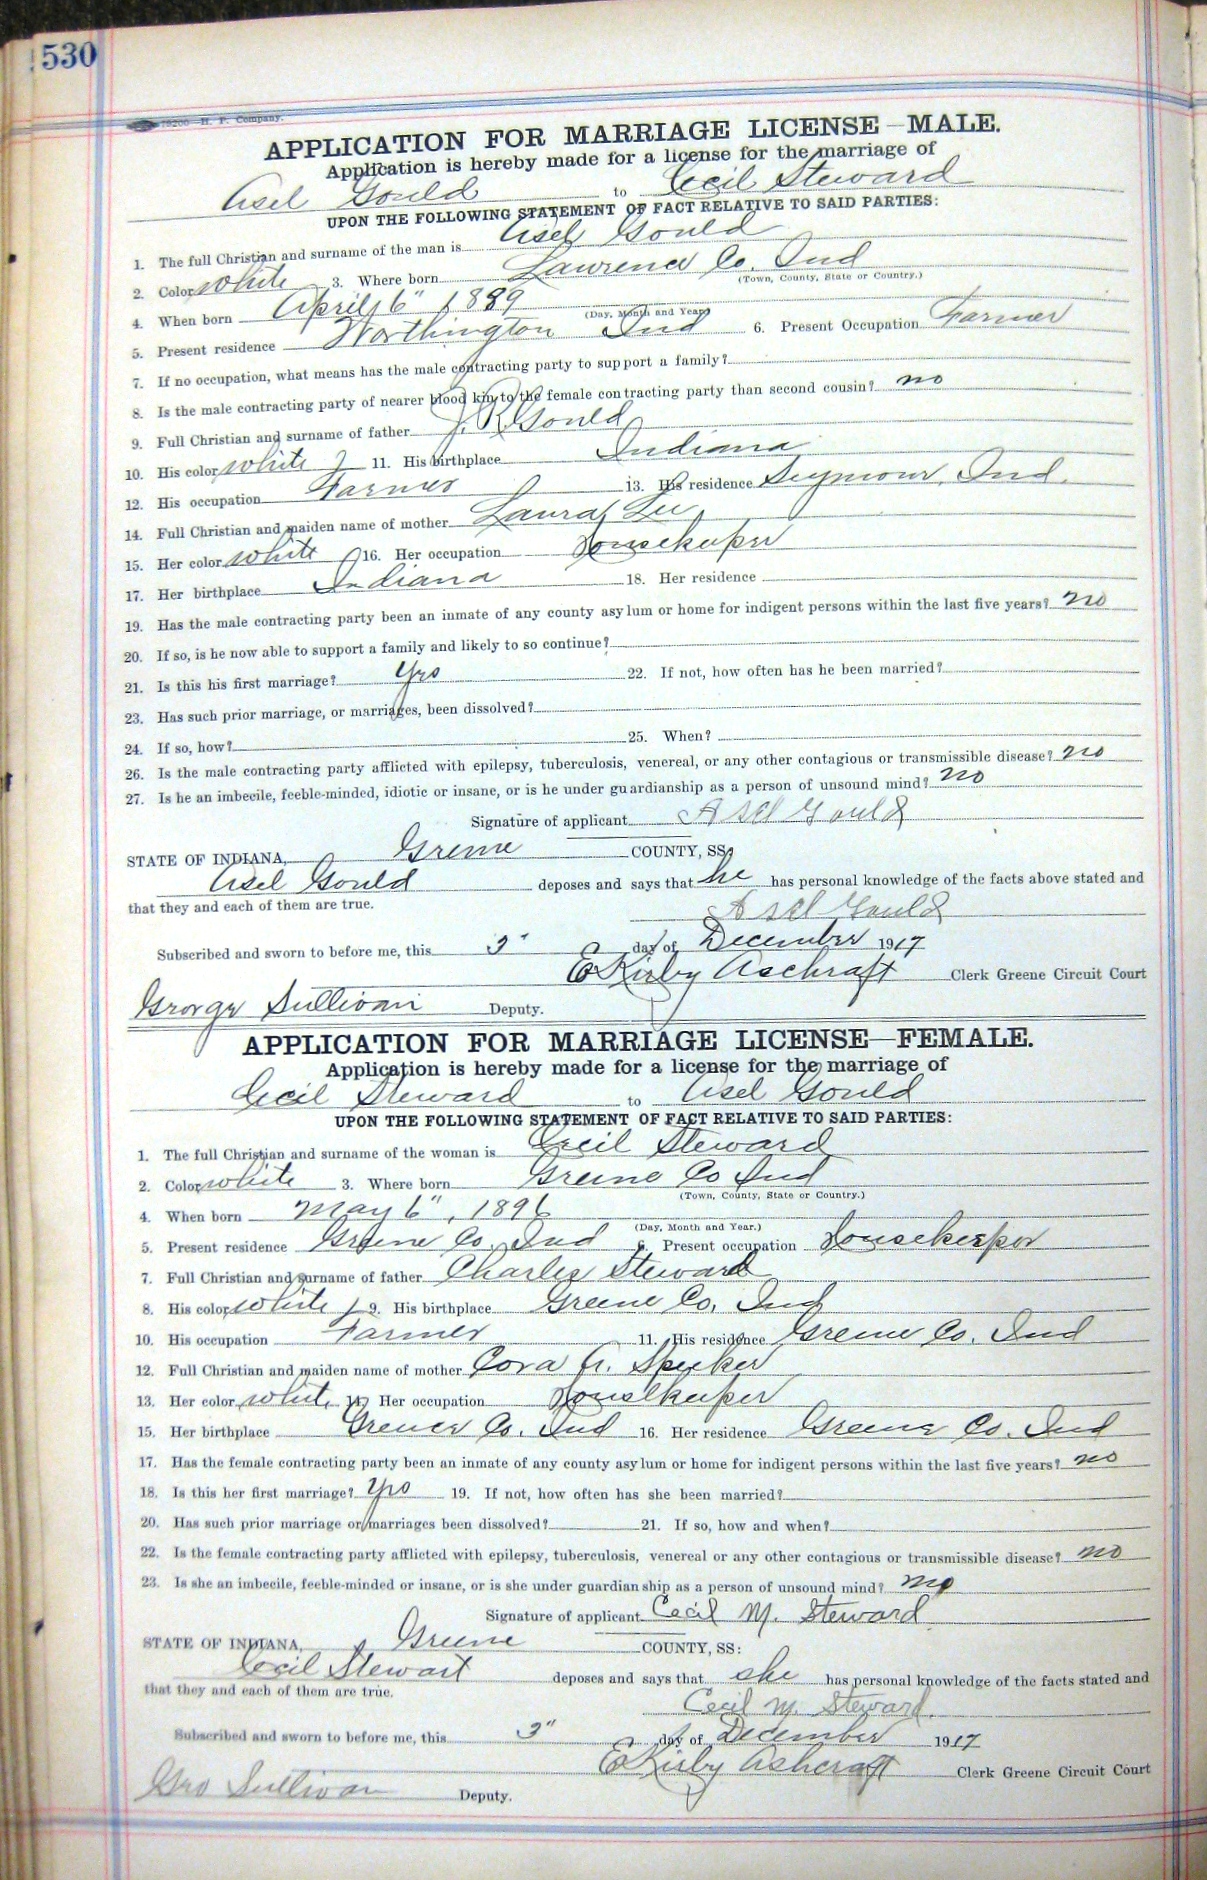 530
79200—H. P. Company.
APPLICATION FOR MARRIAGE LICENSE—MALE.
Application is hereby made for a license for the marriage of
Asel Gould to Cecil Steward
UPON THE FOLLOWING STATEMENT OF FACT RELATIVE TO SAID PARTIES:
1. The full Christian and surname of the man is Asel Gould
2. Color white 3. Where born Lawrence Co. Ind
(Town, County, State or Country.)
4. When born April 6" 1889
(Day, Month and Year)
5. Present residence Worthington Ind 6. Present Occupation Farmer
7. If no occupation, what means has the male contracting party to support a family?
8. Is the male contracting party of nearer blood kin to the female contracting party than second cousin? no
9. Full Christian and surname of father J. R. Gould
10. His color white 11. His birthplace Indiana
12. His occupation Farmer 13. His residence Seymour, Ind.
14. Full Christian and maiden name of mother Laura Lee
15. Her color white 16. Her occupation Housekeeper
17. Her birthplace Indiana 18. Her residence
19. Has the male contracting party been an inmate of any county asylum or home for indigent persons within the last five years? no
20. If so, is he now able to support a family and likely to so continue?
21. Is this his first marriage? Yes 22. If not, how often has he been married?
23. Has such prior marriage, or marriages, been dissolved?
24. If so, how? 25. When?
26. Is the male contracting party afflicted with epilepsy, tuberculosis, venereal, or any other contagious or transmissible disease? no
27. Is he an imbecile, feeble-minded, idiotic or insane, or is he under guardianship as a person of unsound mind? no
Signature of applicant Asel Gould
STATE OF INDIANA, Greene COUNTY, SS:
Asel Gould deposes and says that he has personal knowledge of the facts above stated and
that they and each of them are true. Asel Gould
Subscribed and sworn to before me, this 3" day of December 1917
E Kirby Ashcraft Clerk Greene Circuit Court
George Sullivan Deputy.
APPLICATION FOR MARRIAGE LICENSE—FEMALE.
Application is hereby made for a license for the marriage of
Cecil Steward to Asel Gould
UPON THE FOLLOWING STATEMENT OF FACT RELATIVE TO SAID PARTIES:
1. The full Christian and surname of the woman is Cecil Steward
2. Color white 3. Where born Greene Co Ind
(Town, County, State or Country.)
4. When born May 6", 1896
(Day, Month and Year.)
5. Present residence Greene Co. Ind 6. Present occupation Housekeeper
7. Full Christian and surname of father Charles Steward
8. His color white 9. His birthplace Greene Co. Ind
10. His occupation Farmer 11. His residence Greene Co. Ind
12. Full Christian and maiden name of mother Cora A. Speeker
13. Her color white 14. Her occupation Housekeeper
15. Her birthplace Greene Co. Ind 16. Her residence Greene Co. Ind
17. Has the female contracting party been an inmate of any county asylum or home for indigent persons within the last five years? no
18. Is this her first marriage? Yes 19. If not, how often has she been married?
20. Has such prior marriage or marriages been dissolved? 21. If so, how and when?
22. Is the female contracting party afflicted with epilepsy, tuberculosis, venereal or any other contagious or transmissible disease? no
23. Is she an imbecile, feeble-minded or insane, or is she under guardianship as a person of unsound mind? no
Signature of applicant Cecil M. Steward
STATE OF INDIANA, Greene COUNTY, SS:
Cecil Stewart deposes and says that she has personal knowledge of the facts stated and
that they and each of them are true. Cecil M. Steward.
Subscribed and sworn to before me, this 3" day of December 1917
E Kirby Ashcraft Clerk Greene Circuit Court
Geo Sullivan Deputy.